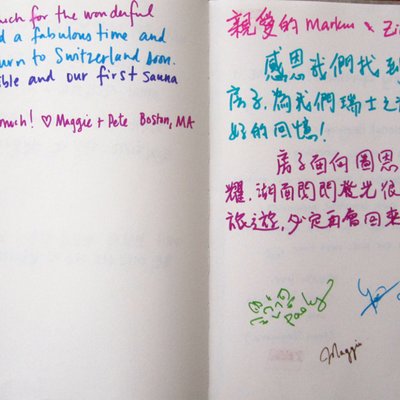 uch for the wonderful
d a fabulous time and
urn to Switzerland soon.
ible and our first sauna
much! ♡ Maggie + Pete Boston, MA
親愛的 Markus &
感恩我們找到
房子,為我們瑞士之
好的回憶!
房子面向圖恩
耀,湖面閃閃發光很
旅遊,必定再會回來
Maggie